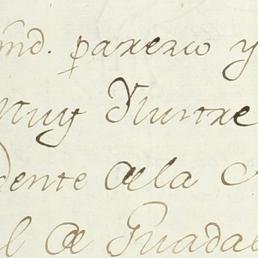 md. parecio y
Muy Yllustre
dente de la
l de Guadal